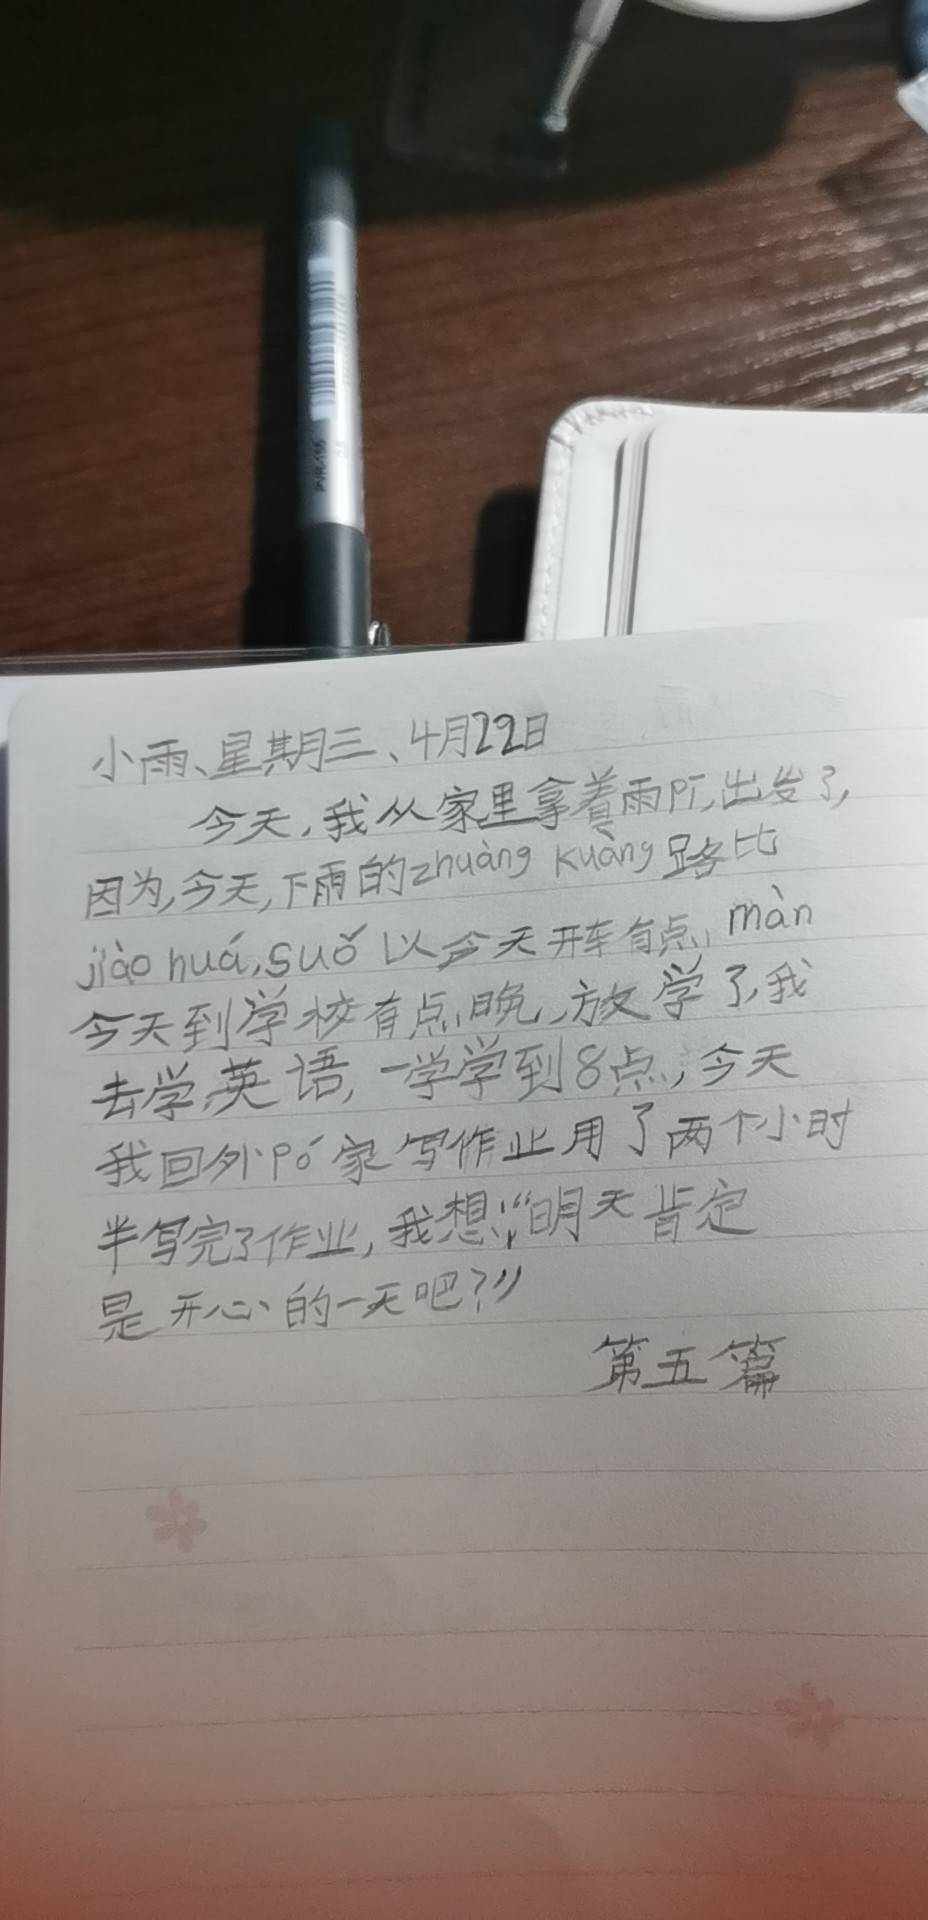 PVR-155
0.5
小雨、星期三、4月22日
今天,我从家里拿着雨pī,出发了,
因为,今天,下雨的zhuàng kuàng路比
jiào huá,suǒ以今天开车有点màn
今天到学校有点晚,放学了,我
去学英语,一学学到8点,今天
我回外pó家写作业用了两个小时
半写完了作业,我想:“明天肯定
是开心的一天吧?”
第五篇